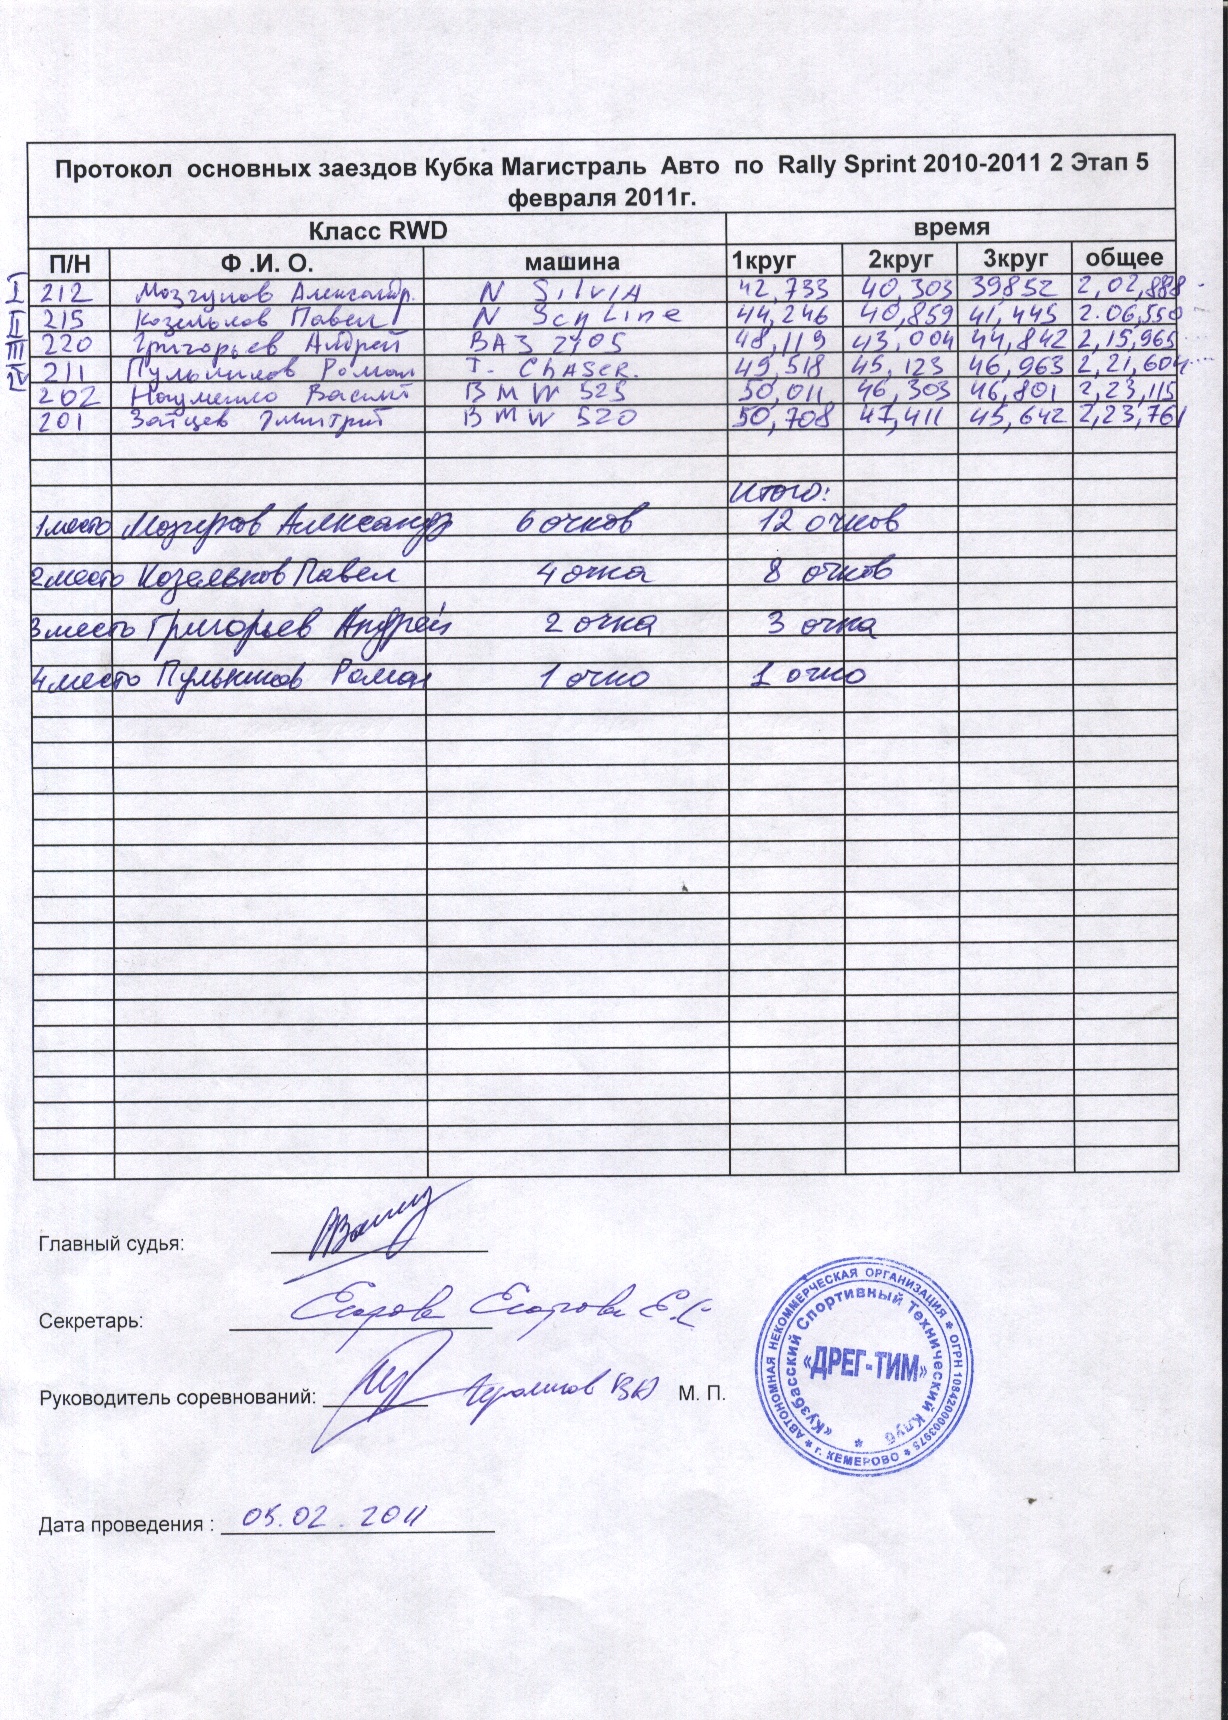 Протокол основных заездов Кубка Магистраль Авто по Rally Sprint 2010-2011 2 Этап 5
февраля 2011г.
Класс RWD время
П/Н Ф .И. О. машина 1круг 2круг 3круг общее
I 212 Мозгунов Александр. N SilviA 42,733 40,303 39852 2,02,888
II 215 Козельков Павел N Scyline 44,246 40,859 41,445 2.06,550
III 220 Григорьев Андрей ВАЗ 2105 48,119 43,004 44,842 2,15,965
IV 211 Роман T. ChASER. 49,518 45,123 46,963 2,21,604
202 Науменко Василий BMW 525 50,011 46,303 46,801 2,23,115
201 Зайцев Дмитрий BMW 520 50,708 47,411 45,642 2,23,761
Итого:
1место Александр 6 очков 12 очков
2место Козельков Павел 4 очка 8 очков
3место Григорьев Андрей 2 очка 3 очка
4место Роман 1 очко 1 очко
Главный судья:
Секретарь: Егорова Егорова Е.С
Руководитель соревнований: М. П.
Дата проведения : 05.02.2011
* АВТОНОМНАЯ НЕКОММЕРЧЕСКАЯ ОРГАНИЗАЦИЯ * ОГРН 1084200003975 * г. КЕМЕРОВО
«Кузбасский Спортивный Технический Клуб *
«ДРЕГ-ТИМ»